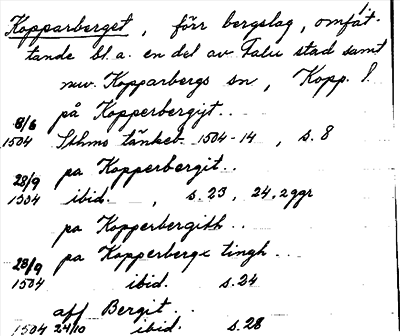 Kopparberget, förr bergslag, omfat-
tande bl.a. en del av Falu stad samt
nuv. Kopparbergs sn, Kopp. l.
8/6 på Kopperbergijt..
1504 Sthms tänkeb. 1504-14, s. 8
28/9 pa Kopperbergit..
1504 ibid., s. 23, 24, 2ggr
pa Kopperbergith..
28/9 pa Kopperbergx tingh...
1504 ibid. s. 24
aff Bergit...
1504 24/10 ibid. s. 28